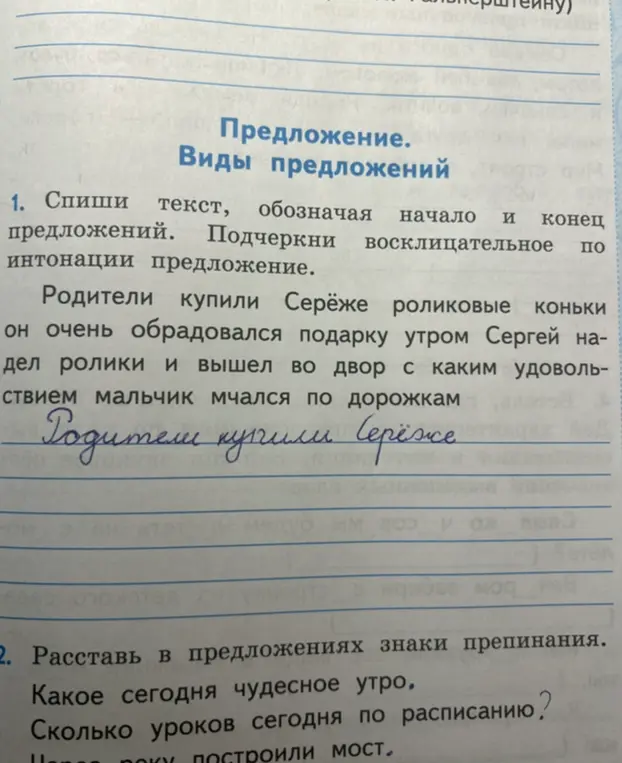 Предложение.
Виды предложений
1. Спиши текст, обозначая начало и конец
предложений. Подчеркни восклицательное по
интонации предложение.
Родители купили Серёже роликовые коньки
он очень обрадовался подарку утром Сергей на-
дел ролики и вышел во двор с каким удоволь-
ствием мальчик мчался по дорожкам
Родители купили Серёже
2. Расставь в предложениях знаки препинания.
Какое сегодня чудесное утро.
Сколько уроков сегодня по расписанию?
Через реку построили мост.